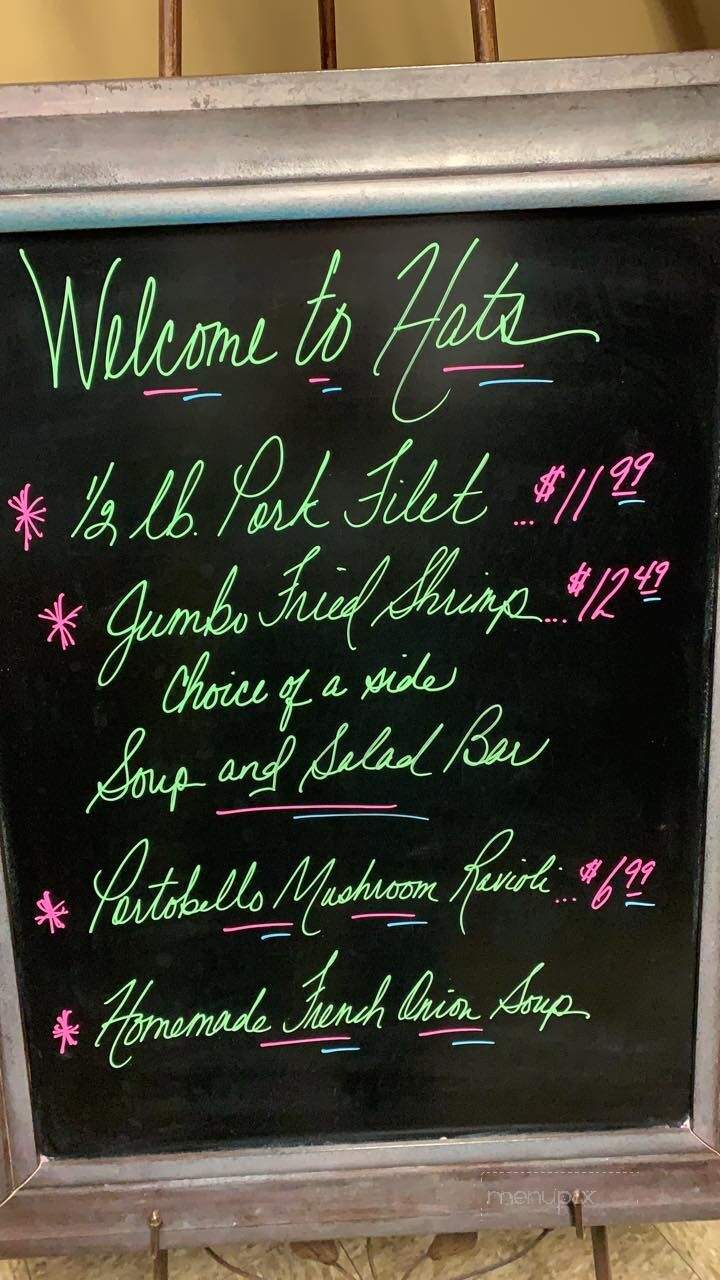 Welcome to Hats
* 1/2 lb. Pork Filet ... $11.99
* Jumbo Fried Shrimp... $12.49
Choice of a side
Soup and Salad Bar
* Portobello Mushroom Ravioli... $6.99
* Homemade French Onion Soup
menupix